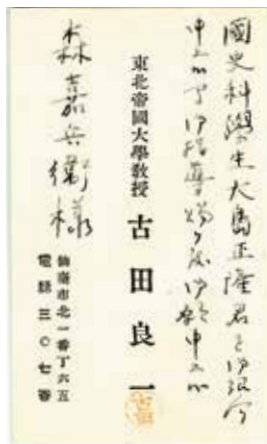 國史科學生大島正隆君を御紹介
申上候間御指導賜り度御願申上候
東北帝國大學教授
古田良一
仙臺市北一番丁六五
電話三〇七番
森嘉兵衛様